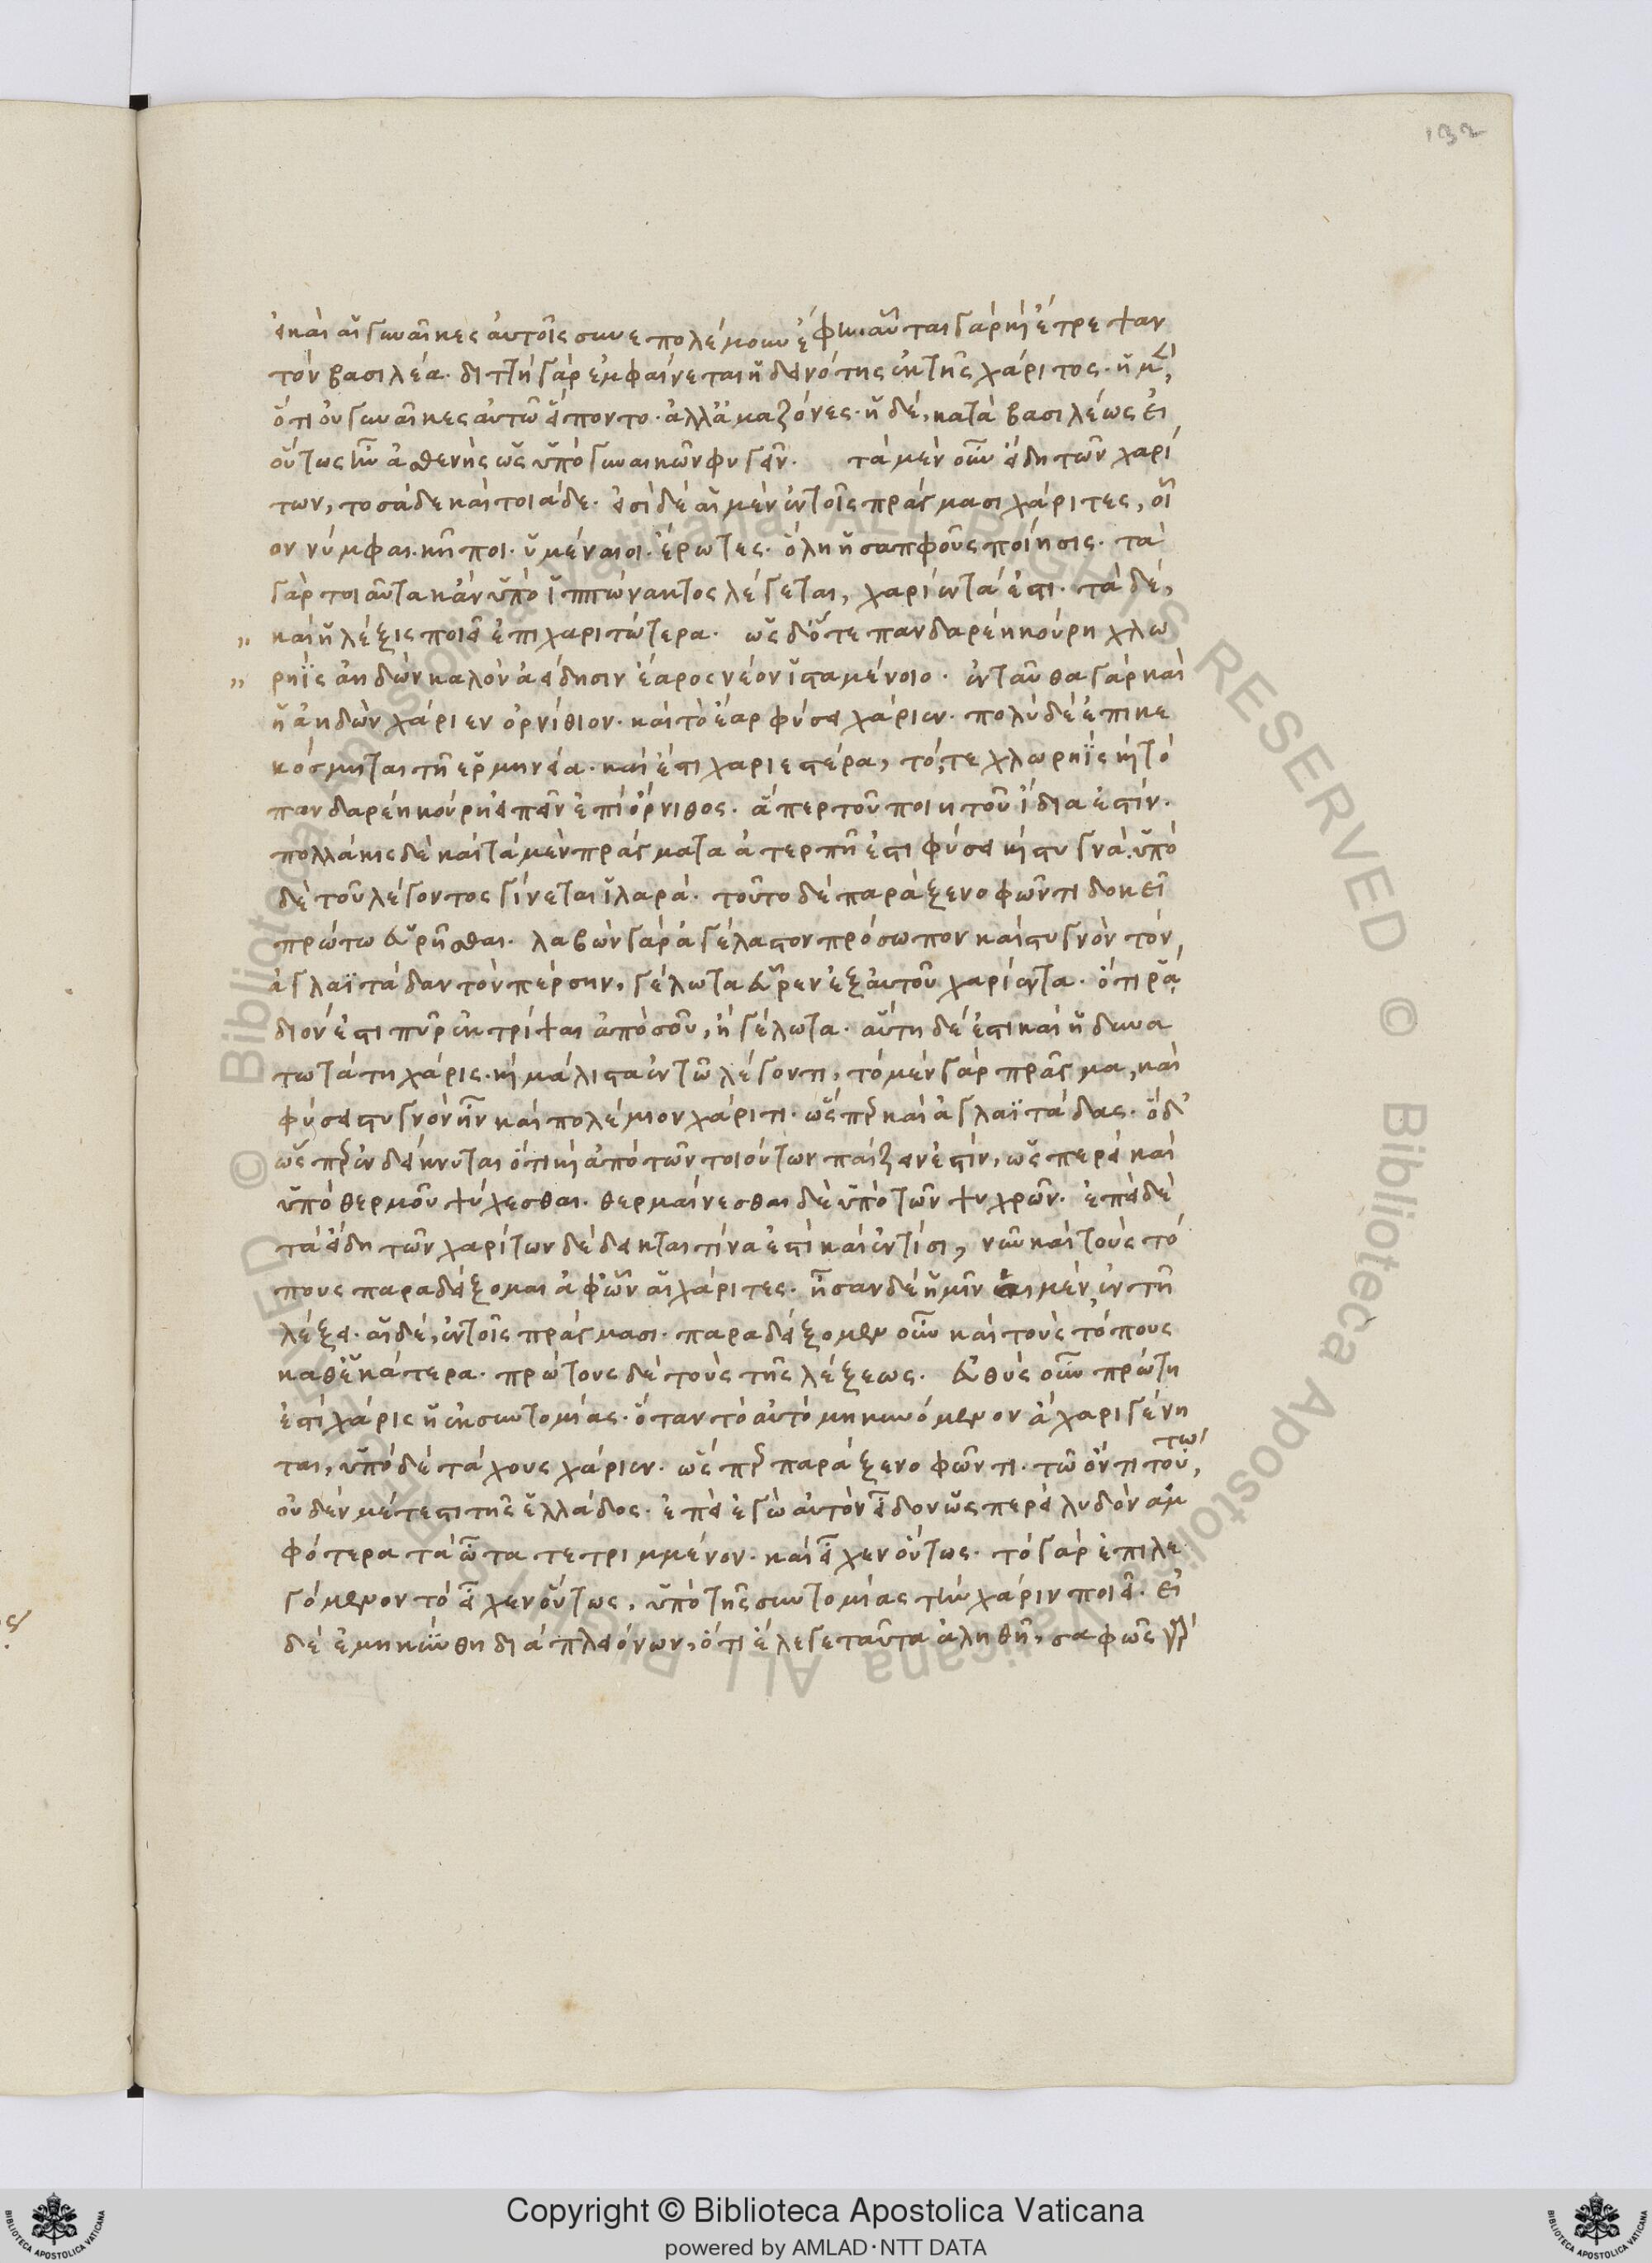 132
εἰ καὶ αἱ γυναῖκες αὐτοῖς συνεπολέμουν ἔφην αὗται γὰρ καὶ ἔτρεψαν
τὸν βασιλέα. διττὴ γὰρ ἐμφαίνεται ἡ δεινότης ἐκ τῆς χάριτος. ἡ μὲν,
ὅτι οὐ γυναῖκες αὐτῶ εἵποντο. ἀλλ' ἀμαζόνες. ἡ δὲ, κατὰ βασιλέως εἰ
οὕτως ἦν ἀσθενὴς ὡς ὑπὸ γυναικῶν φυγεῖν. τὰ μὲν οὖν εἴδη τῶν χαρί
των, τοσάδε καὶ τοιάδε. εἰσὶ δὲ αἱ μὲν ἐν τοῖς πράγμασι χάριτες, οἷ
ον νύμφαι. κῆποι. ὑμέναιοι. ἔρωτες. ὅλη ἡ σαπφοῦς ποίησις. τὰ
γὰρ τοιαῦτα κἂν ὑπὸ ἱππώνακτος λέγεται, χαρίεντά ἐστι. τὰ δὲ,
„ καὶ ἡ λέξις ποιεῖ ἐπιχαριτώτερα. ὡς δ' ὅτε πανδαρέη κούρη χλω
„ ρηῒς ἀηδὼν καλὸν ἀείδησιν ἔαρος νέον ἱσταμένοιο. ἐνταῦθα γὰρ καὶ
ἡ ἀηδὼν χάριεν ὀρνίθιον. καὶ τὸ ἔαρ φύσει χάριεν. πολὺ δὲ ἐπικε
κόσμηται τῆ ἑρμηνεία. καὶ ἔστι χαριεστέρα, τό, τε χλωρηῒς καὶ τὸ
πανδαρέη κούρη εἰπεῖν ἐπὶ ὄρνιθος. ἅπερ τοῦ ποιητοῦ ἴδια ἐστίν.
πολλάκις δὲ καὶ τὰ μὲν πράγματα ἀτερπῆ ἐστι φύσει καὶ στυγνά. ὑπὸ
δὲ τοῦ λέγοντος γίνεται ἱλαρά. τοῦτο δὲ παρὰ ξενοφῶντι δοκεῖ
πρώτω εὑρῆσθαι. λαβὼν γὰρ ἀγέλαστον πρόσωπον καὶ στυγνὸν τὸν
ἀγλαϊτάδαν τὸν πέρσην, γέλωτα εὗρεν ἐξ αὐτοῦ χαρίεντα. ὅτι ῥᾶ
διόν ἐστι πῦρ ἐκτρίψαι ἀπὸ σοῦ, ἢ γέλωτα. αὕτη δέ ἐστι καὶ ἡ δυνα
τωτάτη χάρις. καὶ μάλιστα ἐν τῶ λέγοντι, τὸ μὲν γὰρ πρᾶγμα, καὶ
φύσει στυγνὸν ἦν καὶ πολέμιον χάριτι. ὥσπερ καὶ ἀγλαϊτάδας. ὁ δ'
ὥσπερ ἐνδείκνυται ὅτι καὶ ἀπὸ τῶν τοιούτων παίζειν ἐστίν, ὡσπερεὶ καὶ
ὑπὸ θερμοῦ ψύχεσθαι. θερμαίνεσθαι δὲ ὑπὸ τῶν ψυχρῶν. ἐπεὶ δὲ
τὰ εἴδη τῶν χαρίτων δέδεικται τίνα ἐστὶ καὶ ἐν τίσι, νῦν καὶ τοὺς τό
πους παραδείξομαι ἀφ' ὧν αἱ χάριτες. ἦσαν δὲ ἡμῖν αἱ μὲν, ἐν τῆ
λέξει. αἱ δὲ, ἐν τοῖς πράγμασι. παραδείξομεν οὖν καὶ τοὺς τόπους
καθ' ἑκάτερα. πρώτους δὲ τοὺς τῆς λέξεως. εὐθὺς οὖν πρώτη
ἐστὶ χάρις ἡ ἐκ συντομίας. ὅταν τὸ αὐτὸ μηκυνόμενον ἄχαρι γένη
ται, ὑπὸ δὲ τάχους χάριεν. ὥσπερ παρὰ ξενοφῶντι. τῶ ὄντι τούτω
οὐδὲν μέτεστι τῆς ἑλλάδος. ἐπεὶ ἐγὼ αὐτὸν εἶδον ὡσπερεὶ λυδὸν ἀμ
φότερα τὰ ὦτα τετριμμένον. καὶ εἶχεν οὕτως. τὸ γὰρ ἐπιλε
γόμενον τὸ εἶχεν οὕτως, ὑπὸ τῆς συντομίας τὴν χάριν ποιεῖ. εἰ
δὲ ἐμηκύνθη διὰ πλειόνων, ὅτι ἔλεγε ταῦτα ἀληθῆ, σαφῶς γὰρ